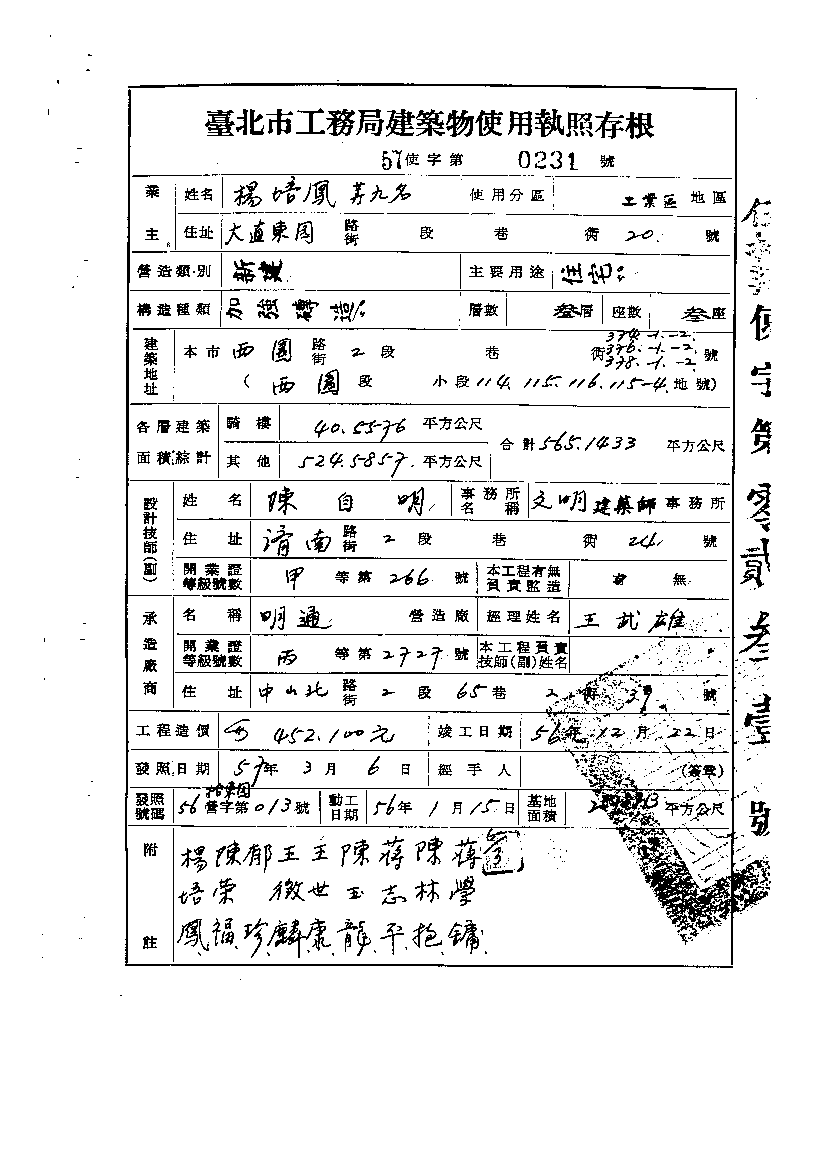 臺北市工務局建築物使用執照存根
57使字第 0231 號
業主 姓名 楊培鳳 等九名 使用分區 工業區 地區
住址 大直東園 路街 段 巷 街 20 號
營造類別 新建 主要用途 住宅
構造種類 加強磚造 層數 叁層 座數 叁座
建築地址 本市 西園 路街 2 段 巷 街 374.-1.-2. 376.-1.-2. 378.-1.-2. 號
( 西園 段 小段 114. 115. 116. 115-4. 地號)
各層建築面積綜計 騎樓 40.5576 平方公尺 合計 565.1433 平方公尺
其他 524.5857 平方公尺
設計技師(副) 姓名 陳自明 事務所名稱 文明建築師 事務所
住址 濟南 路街 2 段 巷 街 24 號
開業證等級號數 甲 等第 266 號 本工程有無負責監造 無
承造廠商 名稱 明通 營造廠 經理姓名 王武雄
開業證等級號數 丙 等第 2727 號 本工程負責技師(副)姓名
住址 中山北 路街 2 段 65 巷 2 街 37 號
工程造價 452.100元 竣工日期 56年 12月 22日
發照日期 57年 3月 6日 經手人 (簽章)
發照號碼 56 營字第 013 號 動工日期 56年 1月 15日 基地面積 平方公尺
附註 楊培鳳 陳榮福 郁珍 王徵麟 王世康 陳玉龍 蔣志平 陳林抱 蔣學鏞
使字第零貳叁壹號